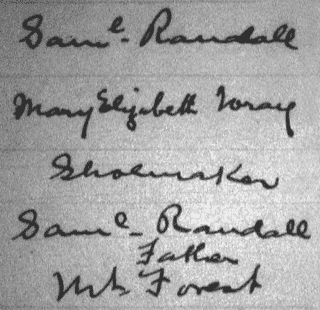 Saml. Randall
Mary Elizabeth Toray
Shoemaker
Saml. Randall
Father
Mt Forest